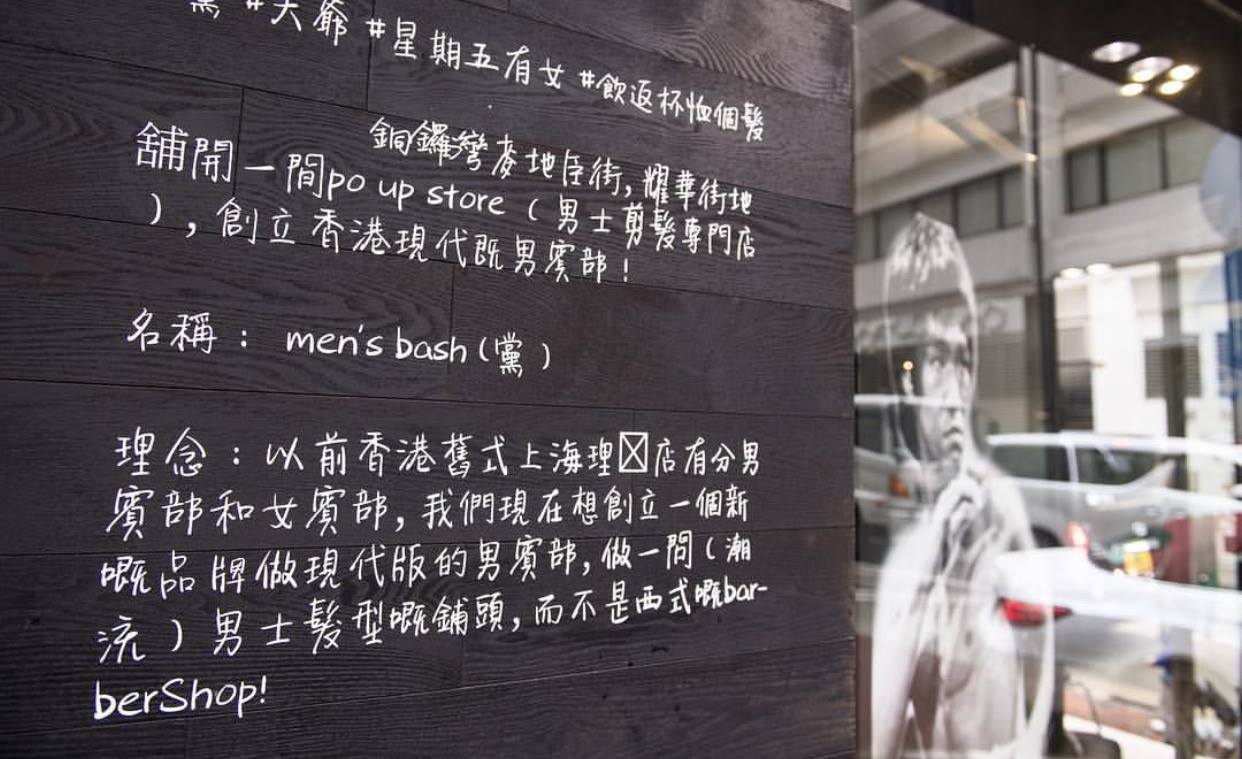 黨 #大爺 #星期五有女 #飲返杯恤個髮
銅鑼灣麥地臣街, 耀華街地
舖開一間po up store (男士剪髮專門店
), 創立香港現代既男賓部!
名稱: men's bash (黨)
理念: 以前香港舊式上海理☒店有分男
賓部和女賓部, 我們現在想創立一個新
嘅品牌做現代版的男賓部, 做一間 (潮
流) 男士髮型嘅鋪頭, 而不是西式嘅bar-
berShop!